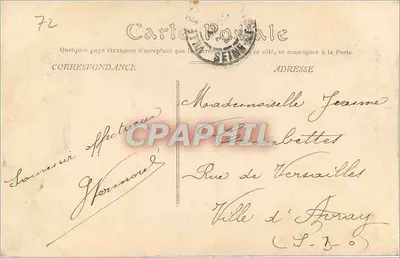 72
Carte Postale
Quelques pays étrangers n'acceptant pas ce côté, se renseigner à la Poste.
CORRESPONDANCE
ADRESSE
Souvenir affectueux
Mademoiselle Jeanne
Rue de Versailles
Ville d'Avray
(S-&-O)
CPARHIL